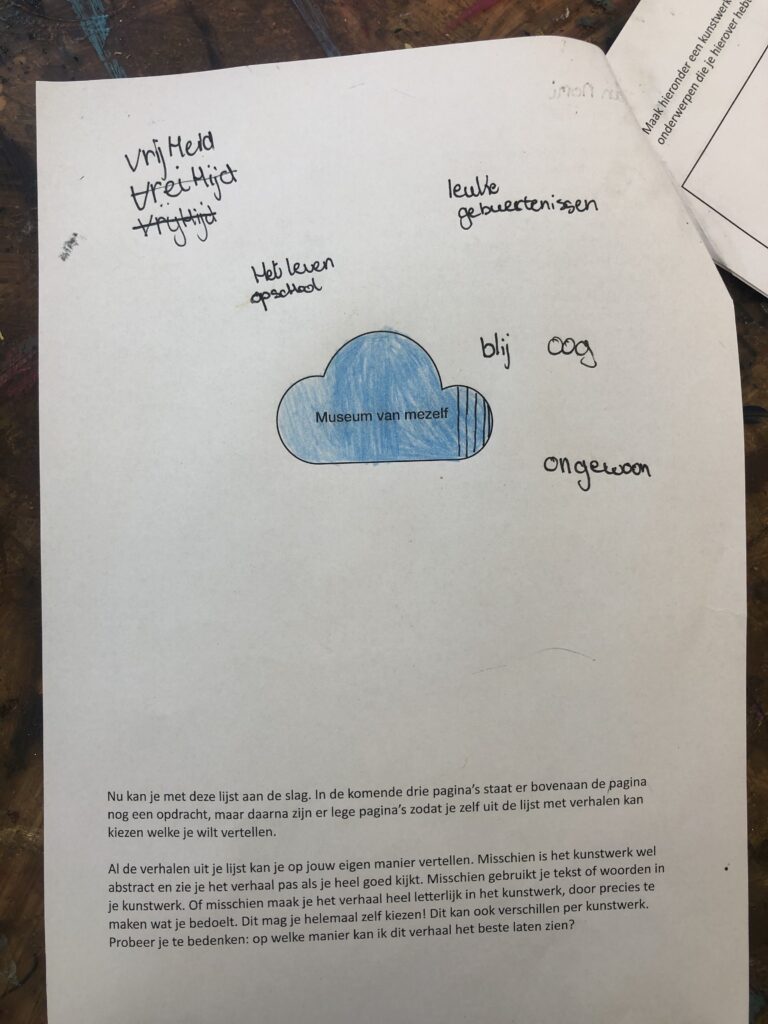 Maak hieronder een kunstwerk
onderwerpen die je hierover heb
vrijHeid
vreiHijd
vrijHijd
leuke
gebuertenissen
Het leven
op school
blij oog
Museum van mezelf
ongewoon
Nu kan je met deze lijst aan de slag. In de komende drie pagina's staat er bovenaan de pagina
nog een opdracht, maar daarna zijn er lege pagina's zodat je zelf uit de lijst met verhalen kan
kiezen welke je wilt vertellen.
Al de verhalen uit je lijst kan je op jouw eigen manier vertellen. Misschien is het kunstwerk wel
abstract en zie je het verhaal pas als je heel goed kijkt. Misschien gebruikt je tekst of woorden in
je kunstwerk. Of misschien maak je het verhaal heel letterlijk in het kunstwerk, door precies te
maken wat je bedoelt. Dit mag je helemaal zelf kiezen! Dit kan ook verschillen per kunstwerk.
Probeer je te bedenken: op welke manier kan ik dit verhaal het beste laten zien?